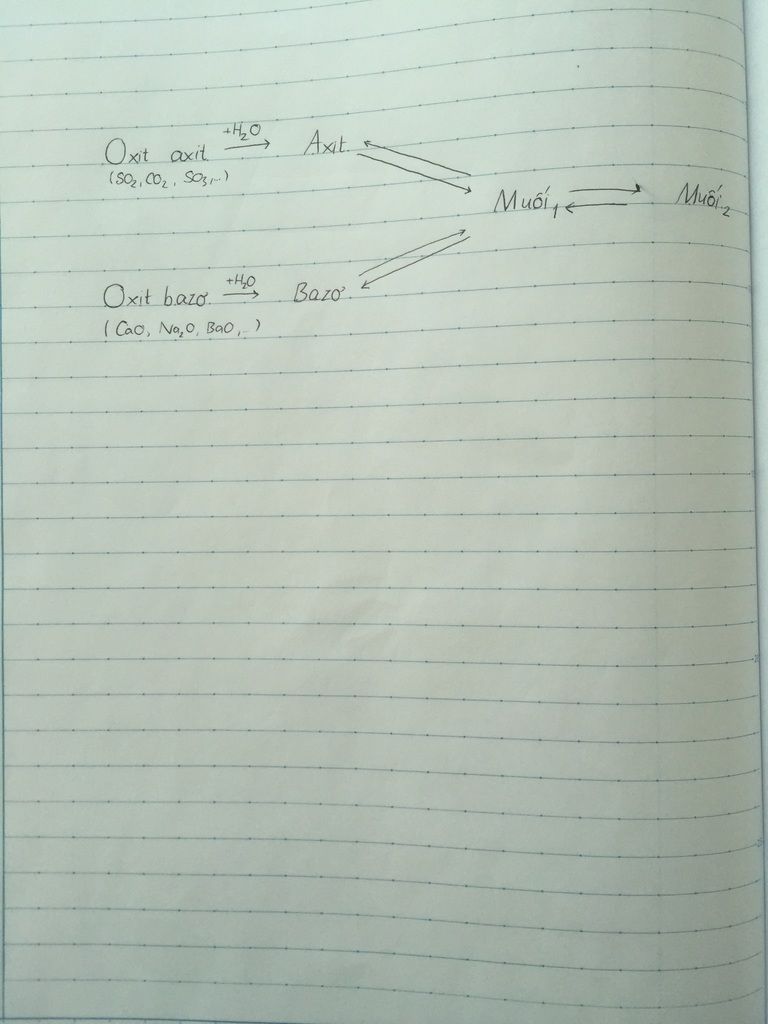 Oxit axit +H₂O → Axit
(SO₂, CO₂, SO₃,...)
Muối₁ ⇄ Muối₂
Oxit bazơ +H₂O → Bazơ
(CaO, Na₂O, BaO,...)